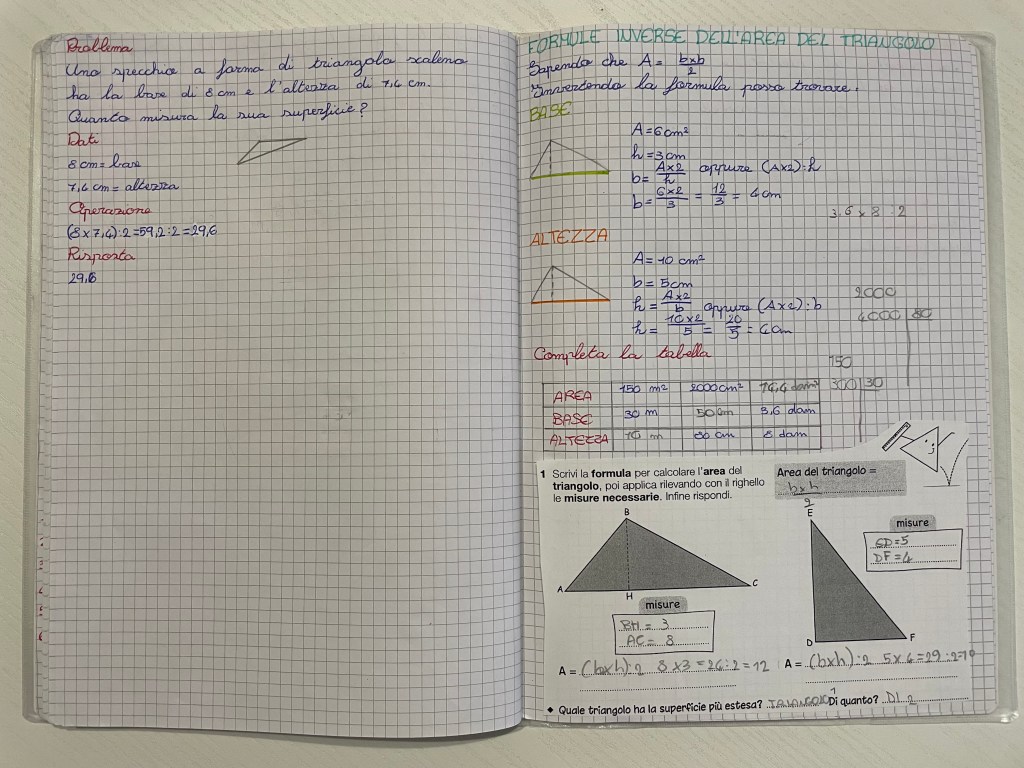 Problema
Uno specchio a forma di triangolo scaleno
ha la base di 8 cm e l'altezza di 7,4 cm.
Quanto misura la sua superficie?
Dati
8 cm = base
7,4 cm = altezza
Operazione
(8 x 7,4) : 2 = 59,2 : 2 = 29,6
Risposta
29,6
FORMULE INVERSE DELL'AREA DEL TRIANGOLO
Sapendo che A = b x h / 2
Invertendo la formula posso trovare:
BASE
A = 6 cm²
h = 3 cm
b = A x 2 / h oppure (A x 2) : h
b = 6 x 2 / 3 = 12 / 3 = 4 cm
3,6 x 8 : 2
ALTEZZA
A = 10 cm²
b = 5 cm
h = A x 2 / b oppure (A x 2) : b
h = 10 x 2 / 5 = 20 / 5 = 4 cm
2000
4000 80
Completa la tabella
150
300 30
AREA 150 m² 2000 cm² 14,4 dam²
BASE 30 m 50 cm 3,6 dam
ALTEZZA 10 m 80 cm 8 dam
1 Scrivi la formula per calcolare l'area del
triangolo, poi applica rilevando con il righello
le misure necessarie. Infine rispondi.
Area del triangolo =
b x h
2
B
A
H
C
misure
BH = 3
AC = 8
A = (b x h) : 2 8 x 3 = 24 : 2 = 12
E
D
F
misure
ED = 5
DF = 4
A = (b x h) : 2 5 x 4 = 20 : 2 = 10
Quale triangolo ha la superficie più estesa? TRIANGOLO 1 Di quanto? DI 2